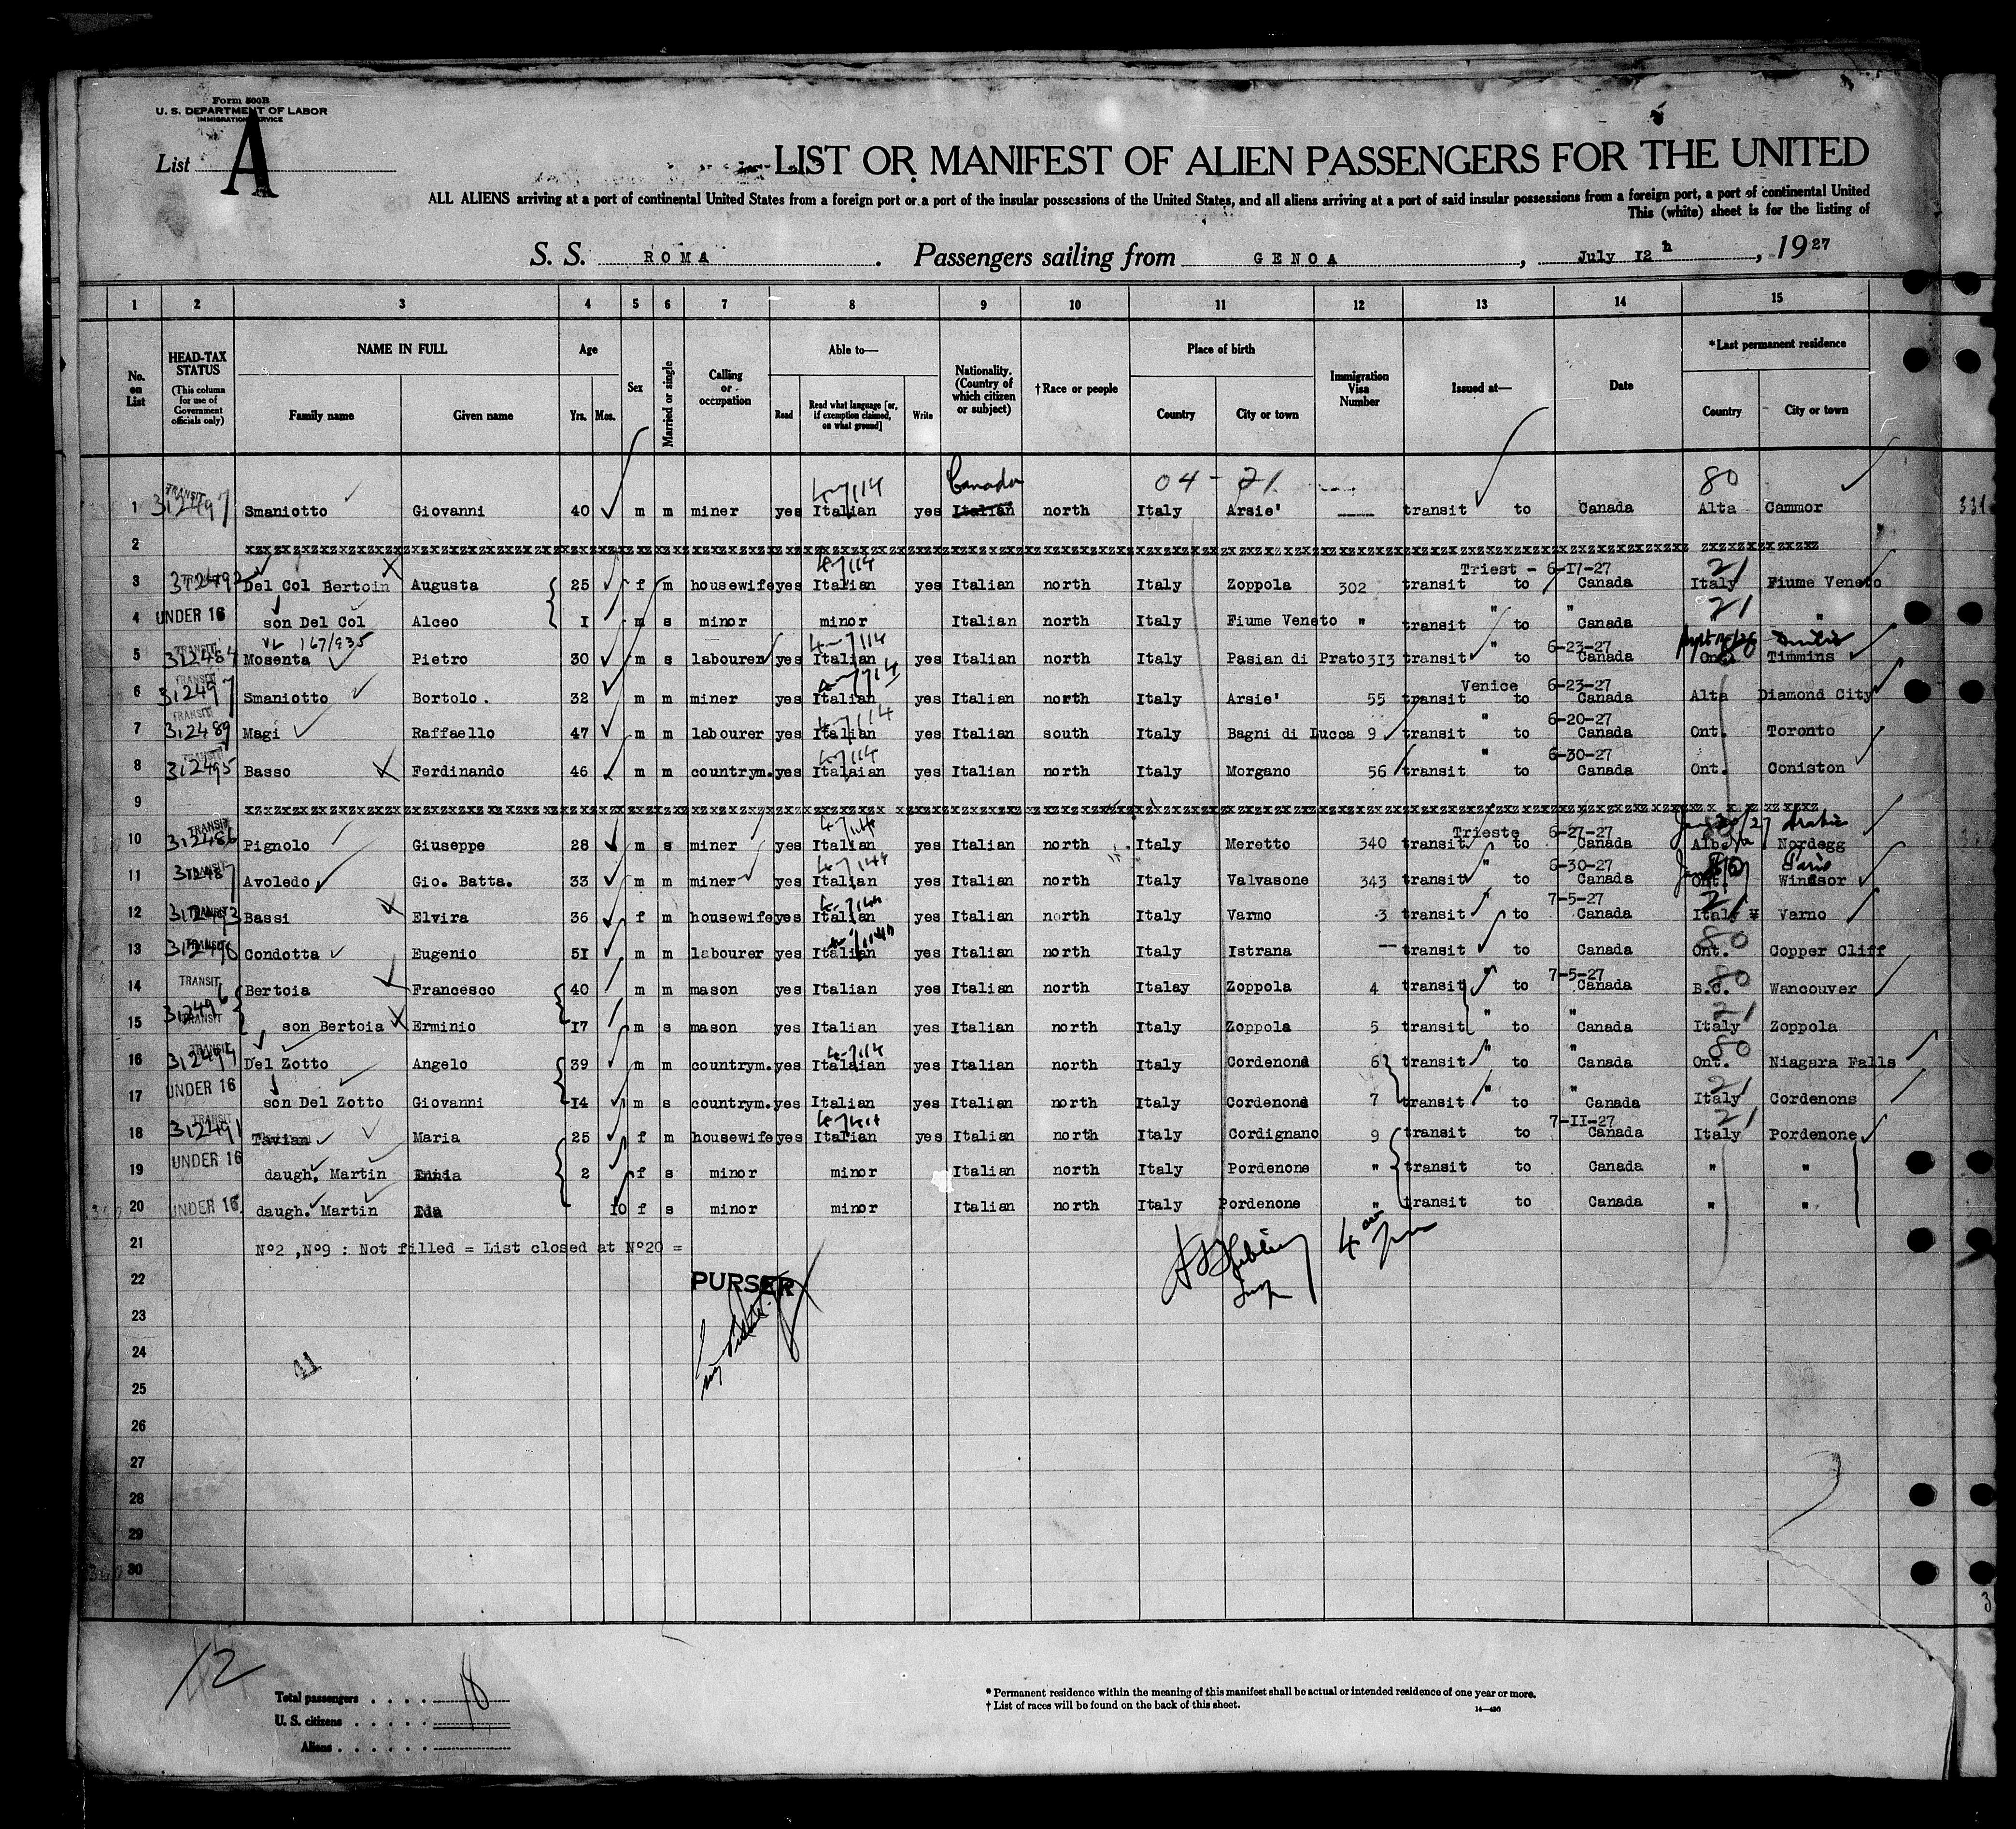 Form 500B
U. S. DEPARTMENT OF LABOR
IMMIGRATION SERVICE
List A
LIST OR MANIFEST OF ALIEN PASSENGERS FOR THE UNITED
ALL ALIENS arriving at a port of continental United States from a foreign port or a port of the insular possessions of the United States, and all aliens arriving at a port of said insular possessions from a foreign port, a port of continental United
This (white) sheet is for the listing of
S. S. ROMA. Passengers sailing from GENOA, July I2 h, 1927
1 2 3 4 5 6 7 8 9 10 11 12 13 14 15
No. on List
HEAD-TAX STATUS (This column for use of Government officials only)
NAME IN FULL Family name Given name
Age Yrs. Mos.
Sex
Married or single
Calling or occupation
Able to— Read Read what language [or, if exemption claimed, on what ground] Write
Nationality. (Country of which citizen or subject)
† Race or people
Place of birth Country City or town
Immigration Visa Number
Issued at—
Date
* Last permanent residence Country City or town
Canada 04 - 21 80
1 TRANSIT 312497 Smaniotto Giovanni 40 m m miner yes Italian yes Italian north Italy Arsie' transit to Canada Alta Cammor
2 xzxzxzxzxzxzxzxzxz
Triest - 6-I7-27 21
3 Del Col Bertoin Augusta 25 f m housewife yes Italian yes Italian north Italy Zoppola 302 transit to Canada Italy Fiume Veneto
4 UNDER 16 son Del Col Alceo I m s minor minor Italian north Italy Fiume Veneto " transit " to " Canada 21 "
167/935 6-23-27
5 TRANSIT 312484 Mosenta Pietro 30 m s labourer yes Italian yes Italian north Italy Pasian di Prato 3I3 transit " to Canada Ont. Timmins
Venice 6-23-27
6 TRANSIT 312497 Smaniotto Bortolo. 32 m m miner yes Italian yes Italian north Italy Arsie' 55 transit to Canada Alta Diamond City
6-20-27
7 TRANSIT 312489 Magi Raffaello 47 m m labourer yes Italian yes Italian south Italy Bagni di Lucca 9 transit " to Canada Ont. Toronto
6-30-27
8 TRANSIT 312495 Basso Ferdinando 46 m m countrym. yes Italaian yes Italian north Italy Morgano 56 transit " to Canada Ont. Coniston
9 xzxzxzxzxzxzxzxzxz
Trieste 6-27-27
10 TRANSIT 312486 Pignolo Giuseppe 28 m s miner yes Italian yes Italian north Italy Meretto 340 transit to Canada Nordegg
6-30-27
11 TRANSIT 312487 Avoledo Gio. Batta. 33 m m miner yes Italian yes Italian north Italy Valvasone 343 transit " to Canada Ont. Windsor
7-5-27 21
12 TRANSIT 312493 Bassi Elvira 36 f m housewife yes Italian yes Italian north Italy Varmo 3 transit " to Canada Italy Varno
80
13 TRANSIT 312496 Condotta Eugenio 5I m m labourer yes Italian yes Italian north Italy Istrana -- transit to Canada Ont. Copper Cliff
7-5-27 80
14 TRANSIT Bertoia Francesco 40 m m mason yes Italian yes Italian north Italay Zoppola 4 transit " to Canada B.C. Wancouver
15 TRANSIT son Bertoia Erminio I7 m s mason yes Italian yes Italian north Italy Zoppola 5 transit " to " Canada 21 Italy Zoppola
16 TRANSIT 312494 Del Zotto Angelo 39 m m countrym. yes Italaian yes Italian north Italy Cordenons 6 transit " to " Canada 80 Ont. Niagara Falls
17 UNDER 16 son Del Zotto Giovanni I4 m s countrym. yes Italian yes Italian north Italy Cordenons 7 transit " to " Canada 21 Italy Cordenons
7-II-27 21
18 TRANSIT 312491 Tavian Maria 25 f m housewife yes Italian yes Italian north Italy Cordignano 9 transit to Canada Italy Pordenone
19 UNDER 16 daugh. Martin 2 f s minor minor Italian north Italy Pordenone " transit to Canada " "
20 UNDER 16 daugh. Martin Ida I0 f s minor minor Italian north Italy Pordenone " transit to Canada " "
21 Nº2 ,Nº9 : Not filled = List closed at Nº20 =
22 PURSER
23
24
25
26
27
28
29
30
12
Total passengers . . . . 18
U. S. citizens . . . . .
Aliens . . . . . .
* Permanent residence within the meaning of this manifest shall be actual or intended residence of one year or more.
† List of races will be found on the back of this sheet.